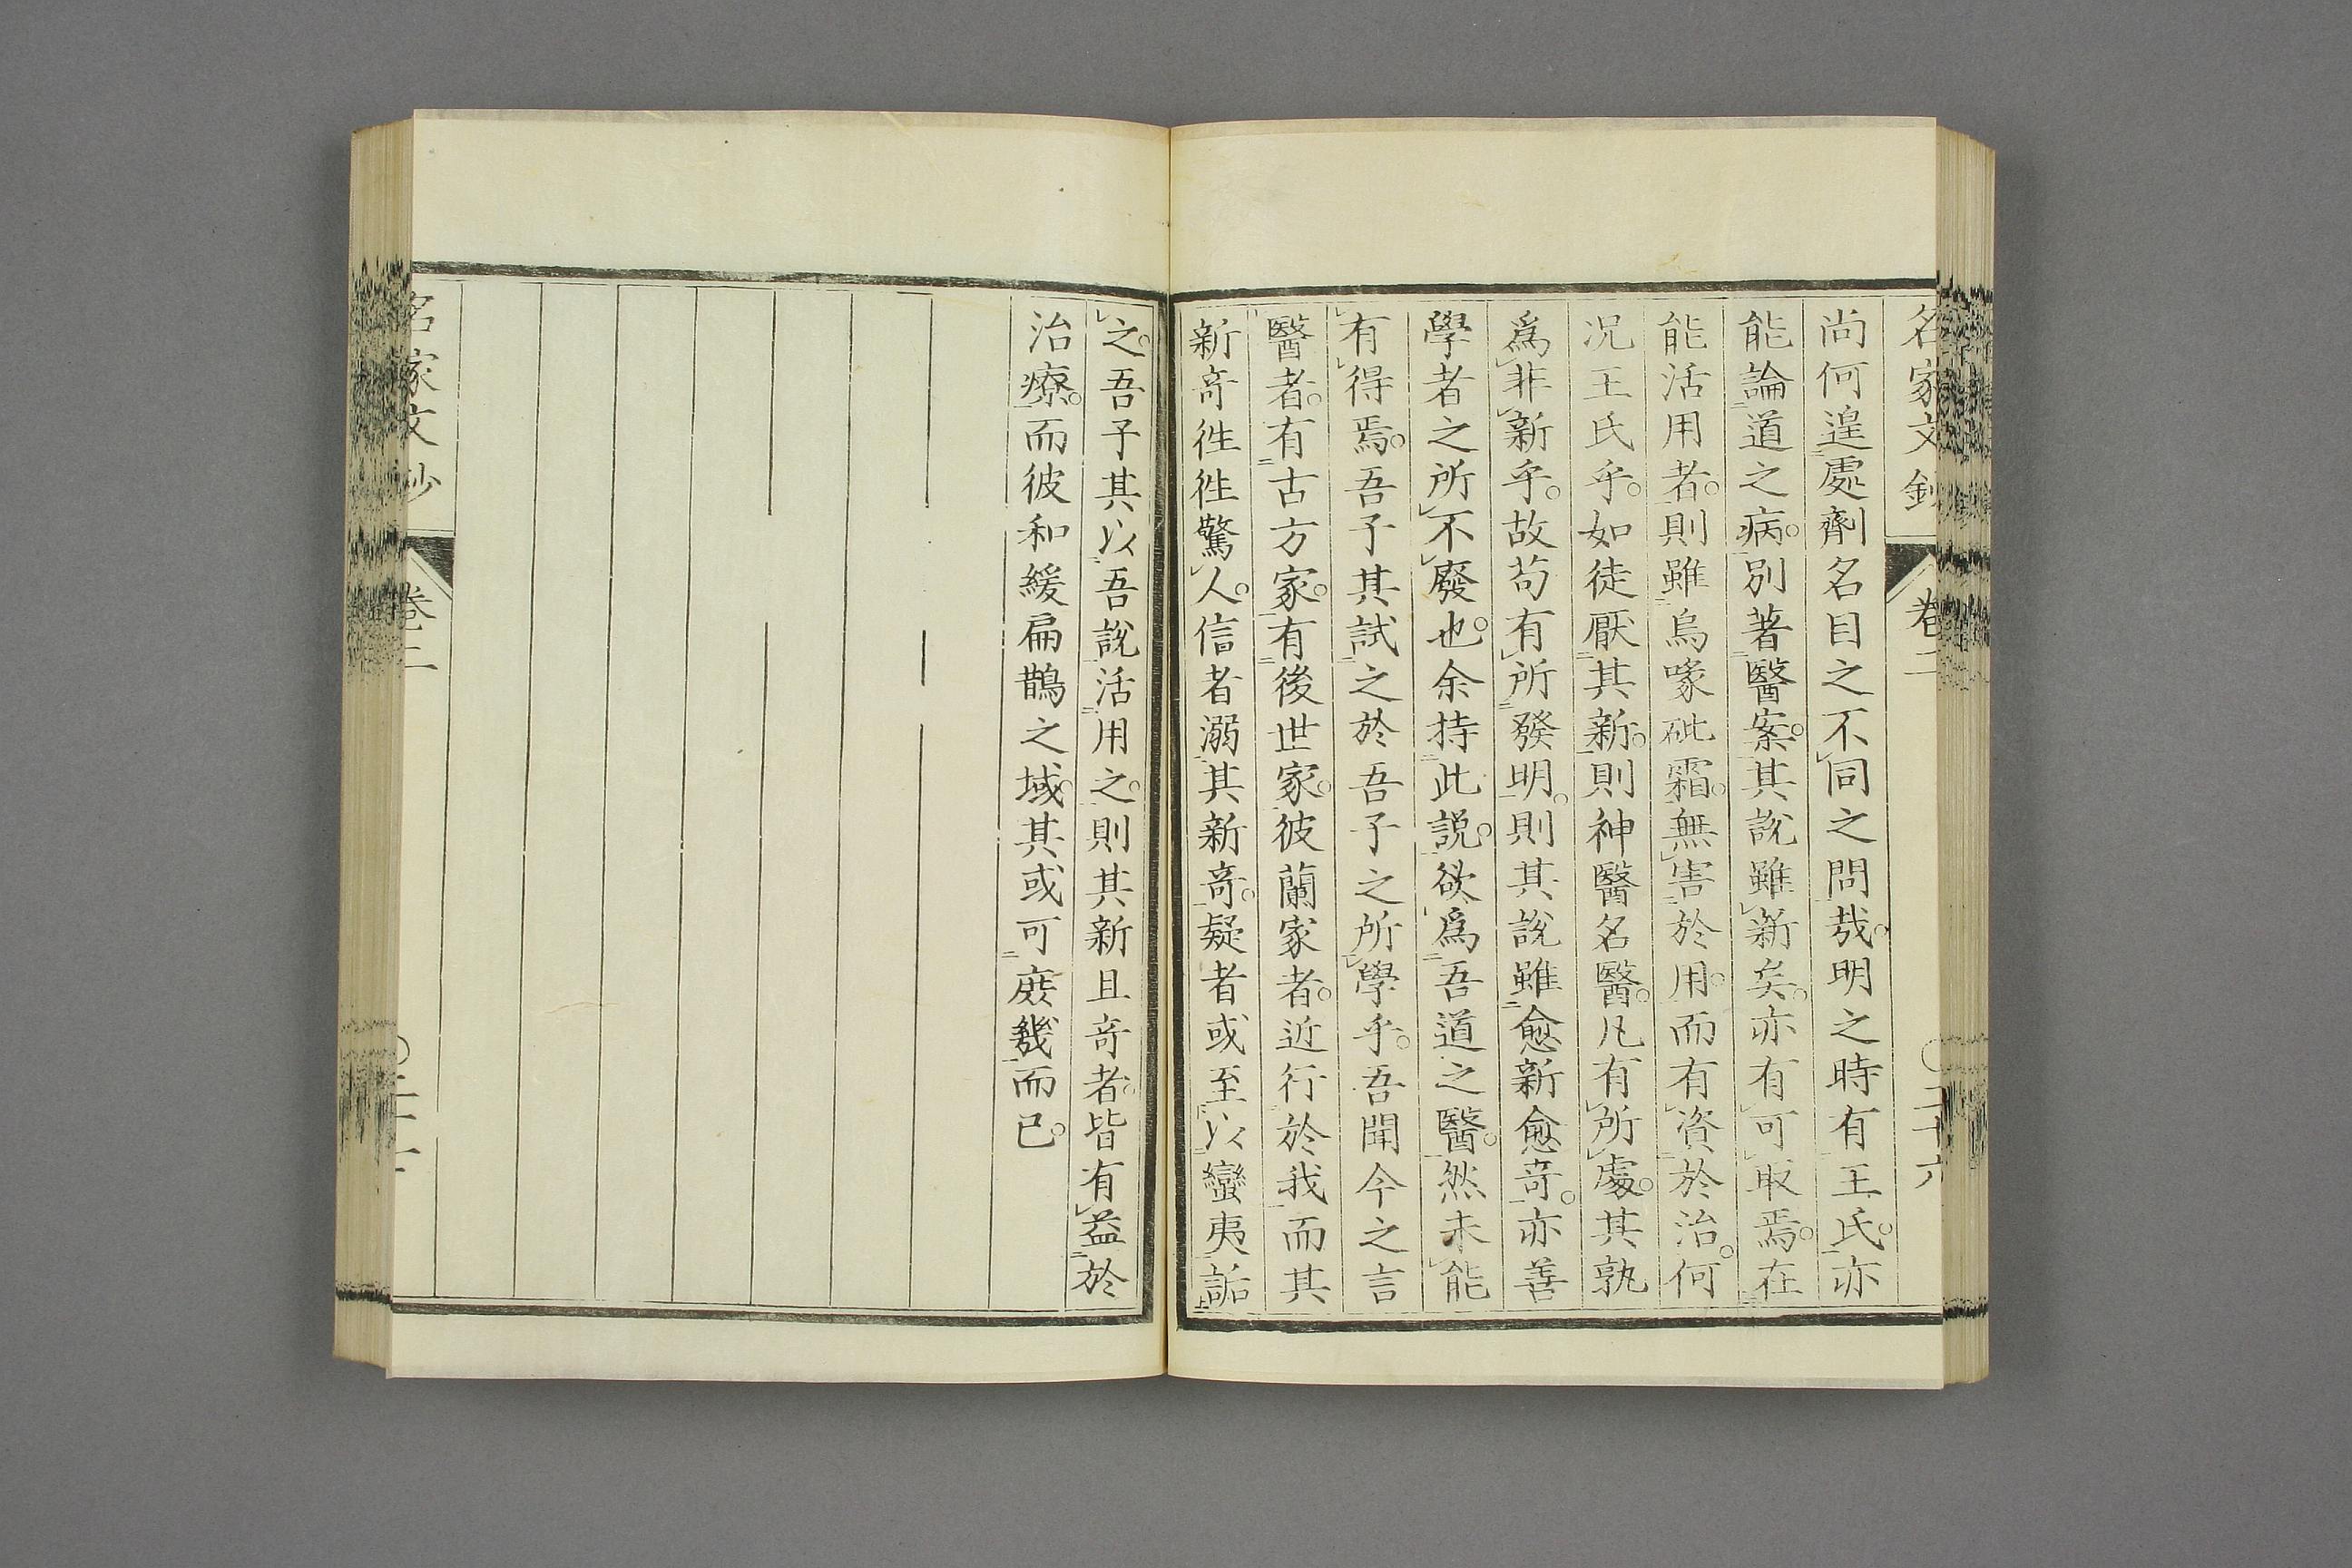 名家文鈔 卷二 〇二十六
尚何遑處劑名目之不同之問哉。明之時有王氏。亦
能論道之病。別著醫案。其說雖新矣。亦有可取焉。在
能活用者。則雖烏喙砒霜。無害於用。而有資於治。何
况王氏乎。如徒厭其新。則神醫名醫。凡有所處。其孰
爲非新乎。故苟有所發明。則其說雖愈新愈奇。亦善
學者之所不廢也。余持此説。欲爲吾道之醫。然未能
有得焉。吾子其試之於吾子之所學乎。吾聞今之言
醫者。有古方家。有後世家。彼蘭家者。近行於我而其
新奇徃徃驚人。信者溺其新奇。疑者或至以蠻夷詬
之。吾子其以吾說活用之。則其新且奇者。皆有益於
治療。而彼和緩扁鵲之域。其或可庶幾而已。
名家文鈔 卷二